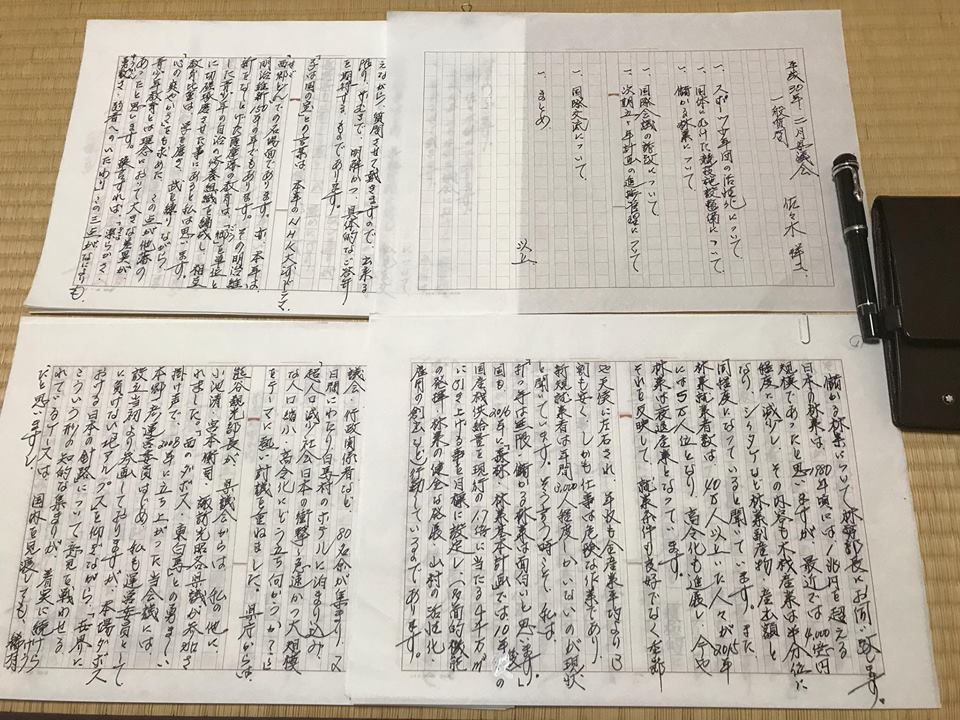 平成30年二月県議会
一般質問 佐々木祥二
一、スポーツ少年団の活性化について
一、国体に向けた競技施設整備について、
一、儲かる林業について、
一、国際会議の誘致について
一、次期五ヶ年計画の進捗管理について
一、国際交流について、
一、まとめ、
以上
えながら、質問させて戴きますので、出来る
限り、明解かつ具体的なご答弁
を期待するものであります。
子は国の宝との言葉は、本年のNHK大河ドラマ、
西郷どんでの名場面であります。本年は、
明治維新150年の年でもあります。その明治維
新をなしとげた薩摩藩の教育は、「郷」を単位と
した青少年の自治的修養組織を編成し、相互
に切磋琢磨させた事にあると私は思います。
教育内容は、学を磨き、武を練りながら
心の爽やかさをも求めた、この点が他藩の
青少年教育とは理念において大きな差異が
あったと思います。換言すれば、柔らかさ、
弱者へのいたわり、この三点が
儲かる林業について林務部長にお伺い致します。
日本の林業は、1980年頃には1兆円を超える
規模であったと思いますが、最近では4,000億円
程度に減少し、その内容も木材産業は半分位に
なり、シイタケなど林業副産物の産出額と
同程度になっていると聞いています。また
林業就業者数は、40万人以上いた人々が2015年
には5万人位となり、高令化も進展し、今や
林業は衰退産業となっています。
それを反映して、就業条件も良好でなく全部
が天候に左右され、年収も全産業平均より3
割も安く、しかも仕事は危険な作業であり、
新規就業者は年間3,000人程度しかいないのが現状
と聞いています。そういう時こそ、私は、
「打つ手は無限」儲かる林業は面白いと思います。
国も、2016年森林・林業基本計画では10年後
国産材供給量を現行の1.7倍に当たる4千万m³
に引き上げる事を目標に設定し「多面的機能
の発揮・林業の健全な発展・山村の活性化・
雇用の創出など」行動しているのであります。
議会・行政関係者など80名余が集まり2
日間にわたり白馬村のホテルに泊まり込み、
「超人口減少社会日本の衝撃・急速かつ大規模
な人口縮小・高令化にどう立ち向かうか」
をテーマに熱い討議を重ねました。県庁からは、
熊谷観光部長が、県議会からは、私の他に
小池清・宮本衡司・諏訪光昭各県議が参加さ
れました。「西のダボス、東の白馬」との勇ましい
掛け声で、2008年に立ち上がった当会議には
本郷が運営委員はじめ、私も運営委員として
設立当初より参画しておりますが、本場ダボス
に負けない北アルプスを仰ぎながら、世界に
おける日本の針路について意見を戦わせる
こういう形の知的な集まりが、着実に続けら
れているケースは、国内を見渡しても、稀有
だと思いますし、